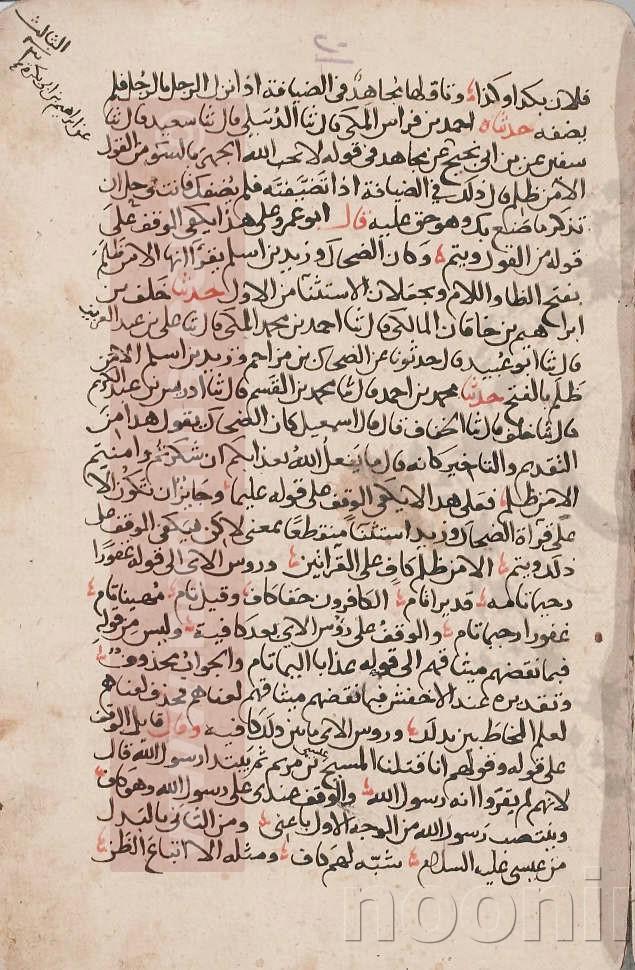 الثالث
عن ابراهيم بن ابى بكر
فلان بكذا وكذا وتاولها مجاهد فى الضيافة اذا نزل الرجل بالرجل فلم
يضفه حدثناه احمد بن فراس المكى قال ثنا الديبلى قال ثنا سعيد قال ثنا
سفين عن بن ابى نجيح عن مجاهد فى قوله لا يحب الله الجهر بالسو من القول
الا من ظلم قال ذلك فى الضيافة اذا تضيفته فلم يضفك فانت فى حل ان
تذكر ما صنع بك وهو حق عليه قال ابو عمرو على هذا يكفى الوقف على
قوله من القول ويتم وكان الضحاك وزيد بن اسلم يقرآنها الا من ظلم
بفتح الظا واللام ويجعلان الاستثنا من الاول حدثنا خلف بن
ابراهيم بن خاقان المالكى قال ثنا احمد بن محمد المكى قال ثنا على بن عبد العزيز
قال ثنا ابو عبيد قال حدثونا عن الضحاك بن مزاحم وزيد بن اسلم الا من
ظلم بالفتح حدثنا محمد بن احمد قال ثنا محمد بن القسم قال ثنا ادريس بن عبد الكريم
قال ثنا خلف قال ثنا الخفاف قال قال اسمعيل كان الضحاك يقول هذا من
التقديم والتاخير كانه قال ما يفعل الله بعذابكم ان شكرتم وامنتم
الا من ظلم فعلى هذا لا يكفى الوقف على قوله عليما وجايز ان تكون الا
على قرآة الضحاك وزيد استثنآ منقطعا بمعنى لاكن فيكفى الوقف على
ذلك ويتم الا من ظلم كاف على القرآتين وروس الاى الى قوله غفورا
رحيما تامه قديرا تام الكافرون حقا كاف وقيل تام مهينا تام
غفورا رحيما تام والوقف على رؤس الاى بعد كافية وليس من قوله
فبما نقضهم ميثاقهم الى قوله عذابا اليما تام والجواب محذوف
وتقديره عند الاخفش فبما نقضهم ميثاقهم لعناهم فحذف لعناهم
لعلم المخاطبين بذلك وروس الاى ما بين ذلك كافيه وقال قايل الوقف
على قوله وقولهم انا قتلنا المسيح عيسى بن مريم ثم يبتدا رسول الله قال
لانهم لم يقروا انه رسول الله والوقف عندى على رسول الله وهو كاف
وينتصب رسول الله من الوجه الاول باعنى ومن الثانى بالبدل
من عيسى عليه السلام شبه لهم كاف ومثله الا اتباع الظن
noonin